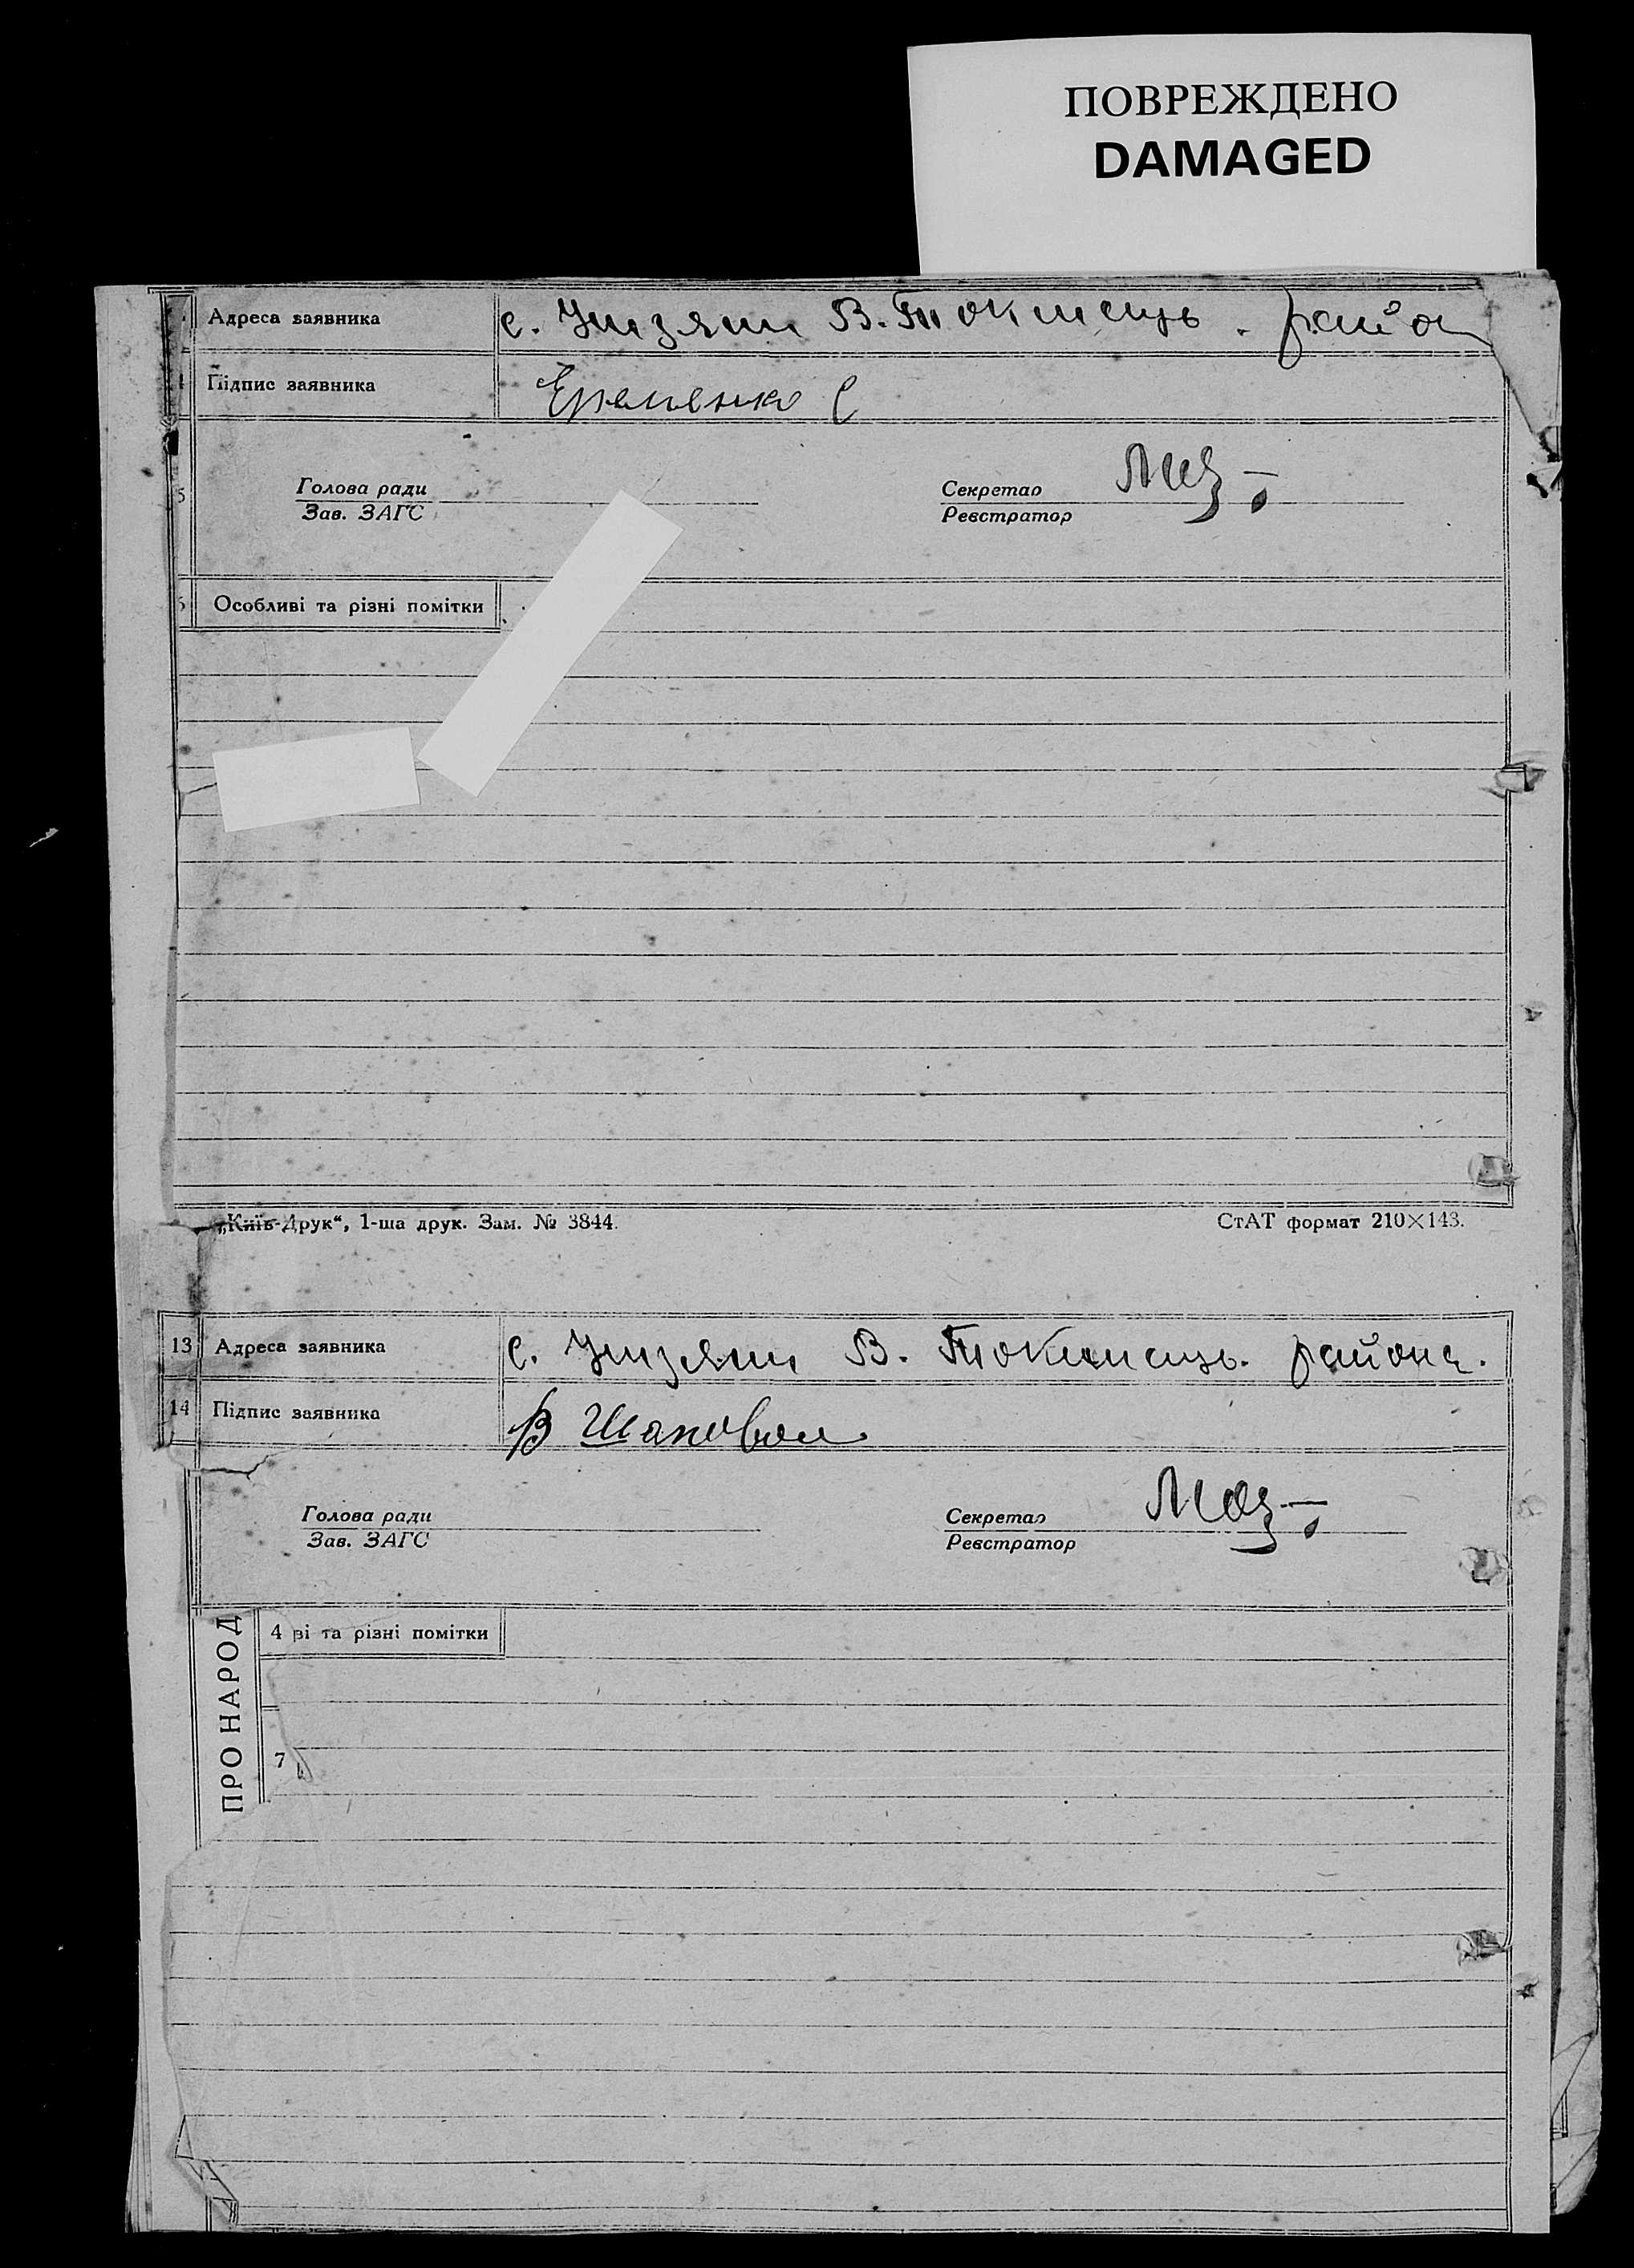 ПОВРЕЖДЕНО
DAMAGED
Адреса заявника с. В. Токмацьк. райо
Підпис заявника Еременко С
5
Голова ради
Зав. ЗАГС
Секретар
Реєстратор
Особливі та різні помітки
„Київ-Друк“, 1-ша друк. Зам. № 3844.
СтАТ формат 210×143.
13 Адреса заявника с. В. Токмацьк. района.
14 Підпис заявника В Шаповал
Голова ради
Зав. ЗАГС
Секретар
Реєстратор
ПРО НАРОД
4 ві та різні помітки
7